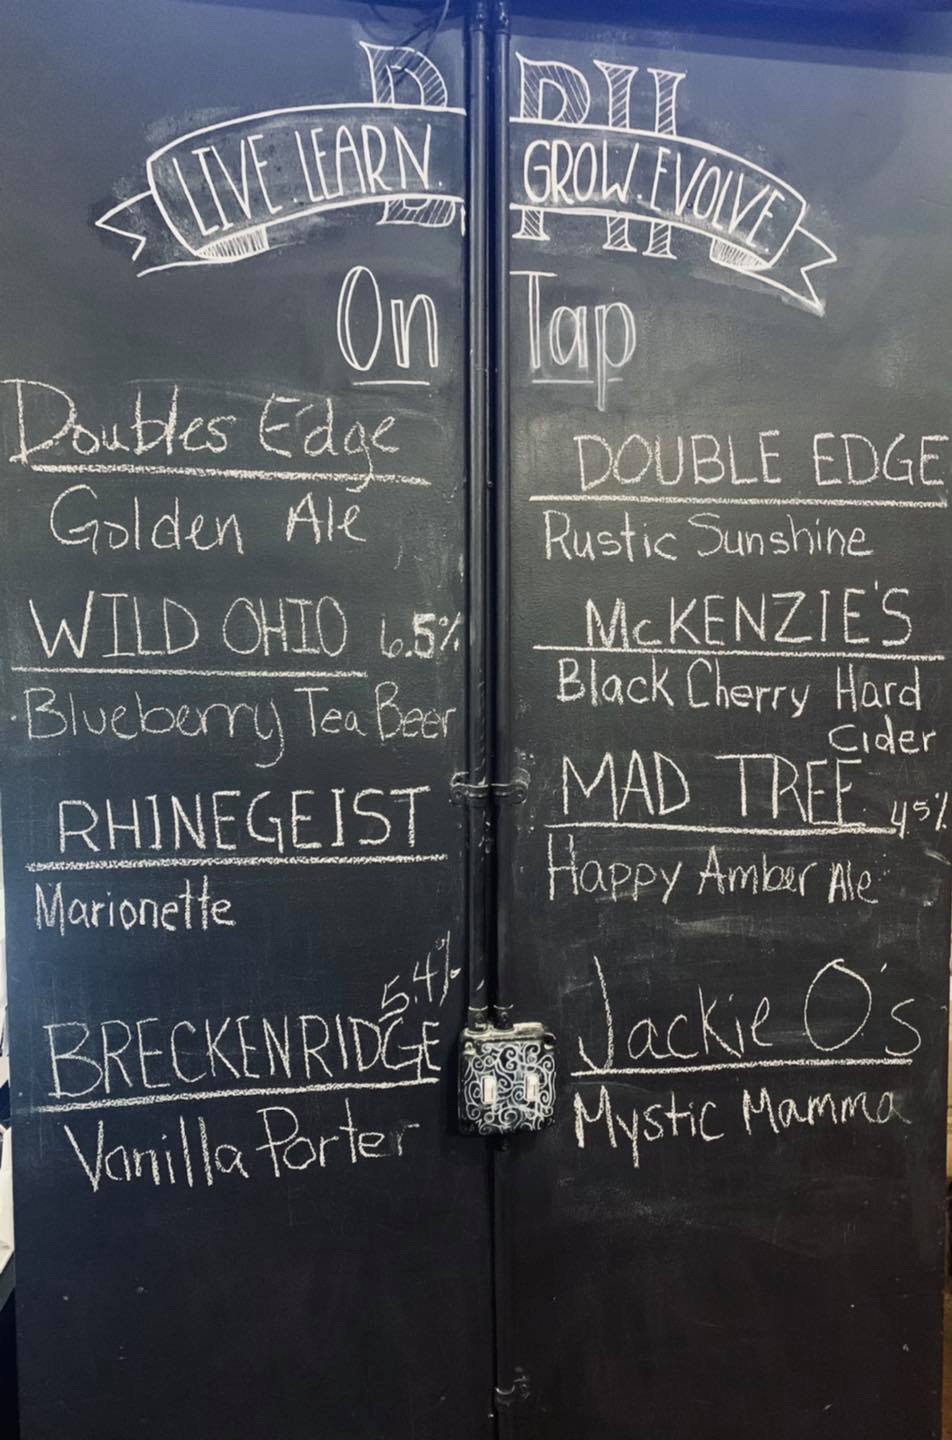 BPH
LIVE. LEARN. GROW. EVOLVE.
On Tap
Doubles Edge
Golden Ale
WILD OHIO 6.5%
Blueberry Tea Beer
RHINEGEIST
Marionette
5.4%
BRECKENRIDGE
Vanilla Porter
DOUBLE EDGE
Rustic Sunshine
McKENZIE'S
Black Cherry Hard
Cider
MAD TREE 45%
Happy Amber Ale
Jackie O's
Mystic Mamma